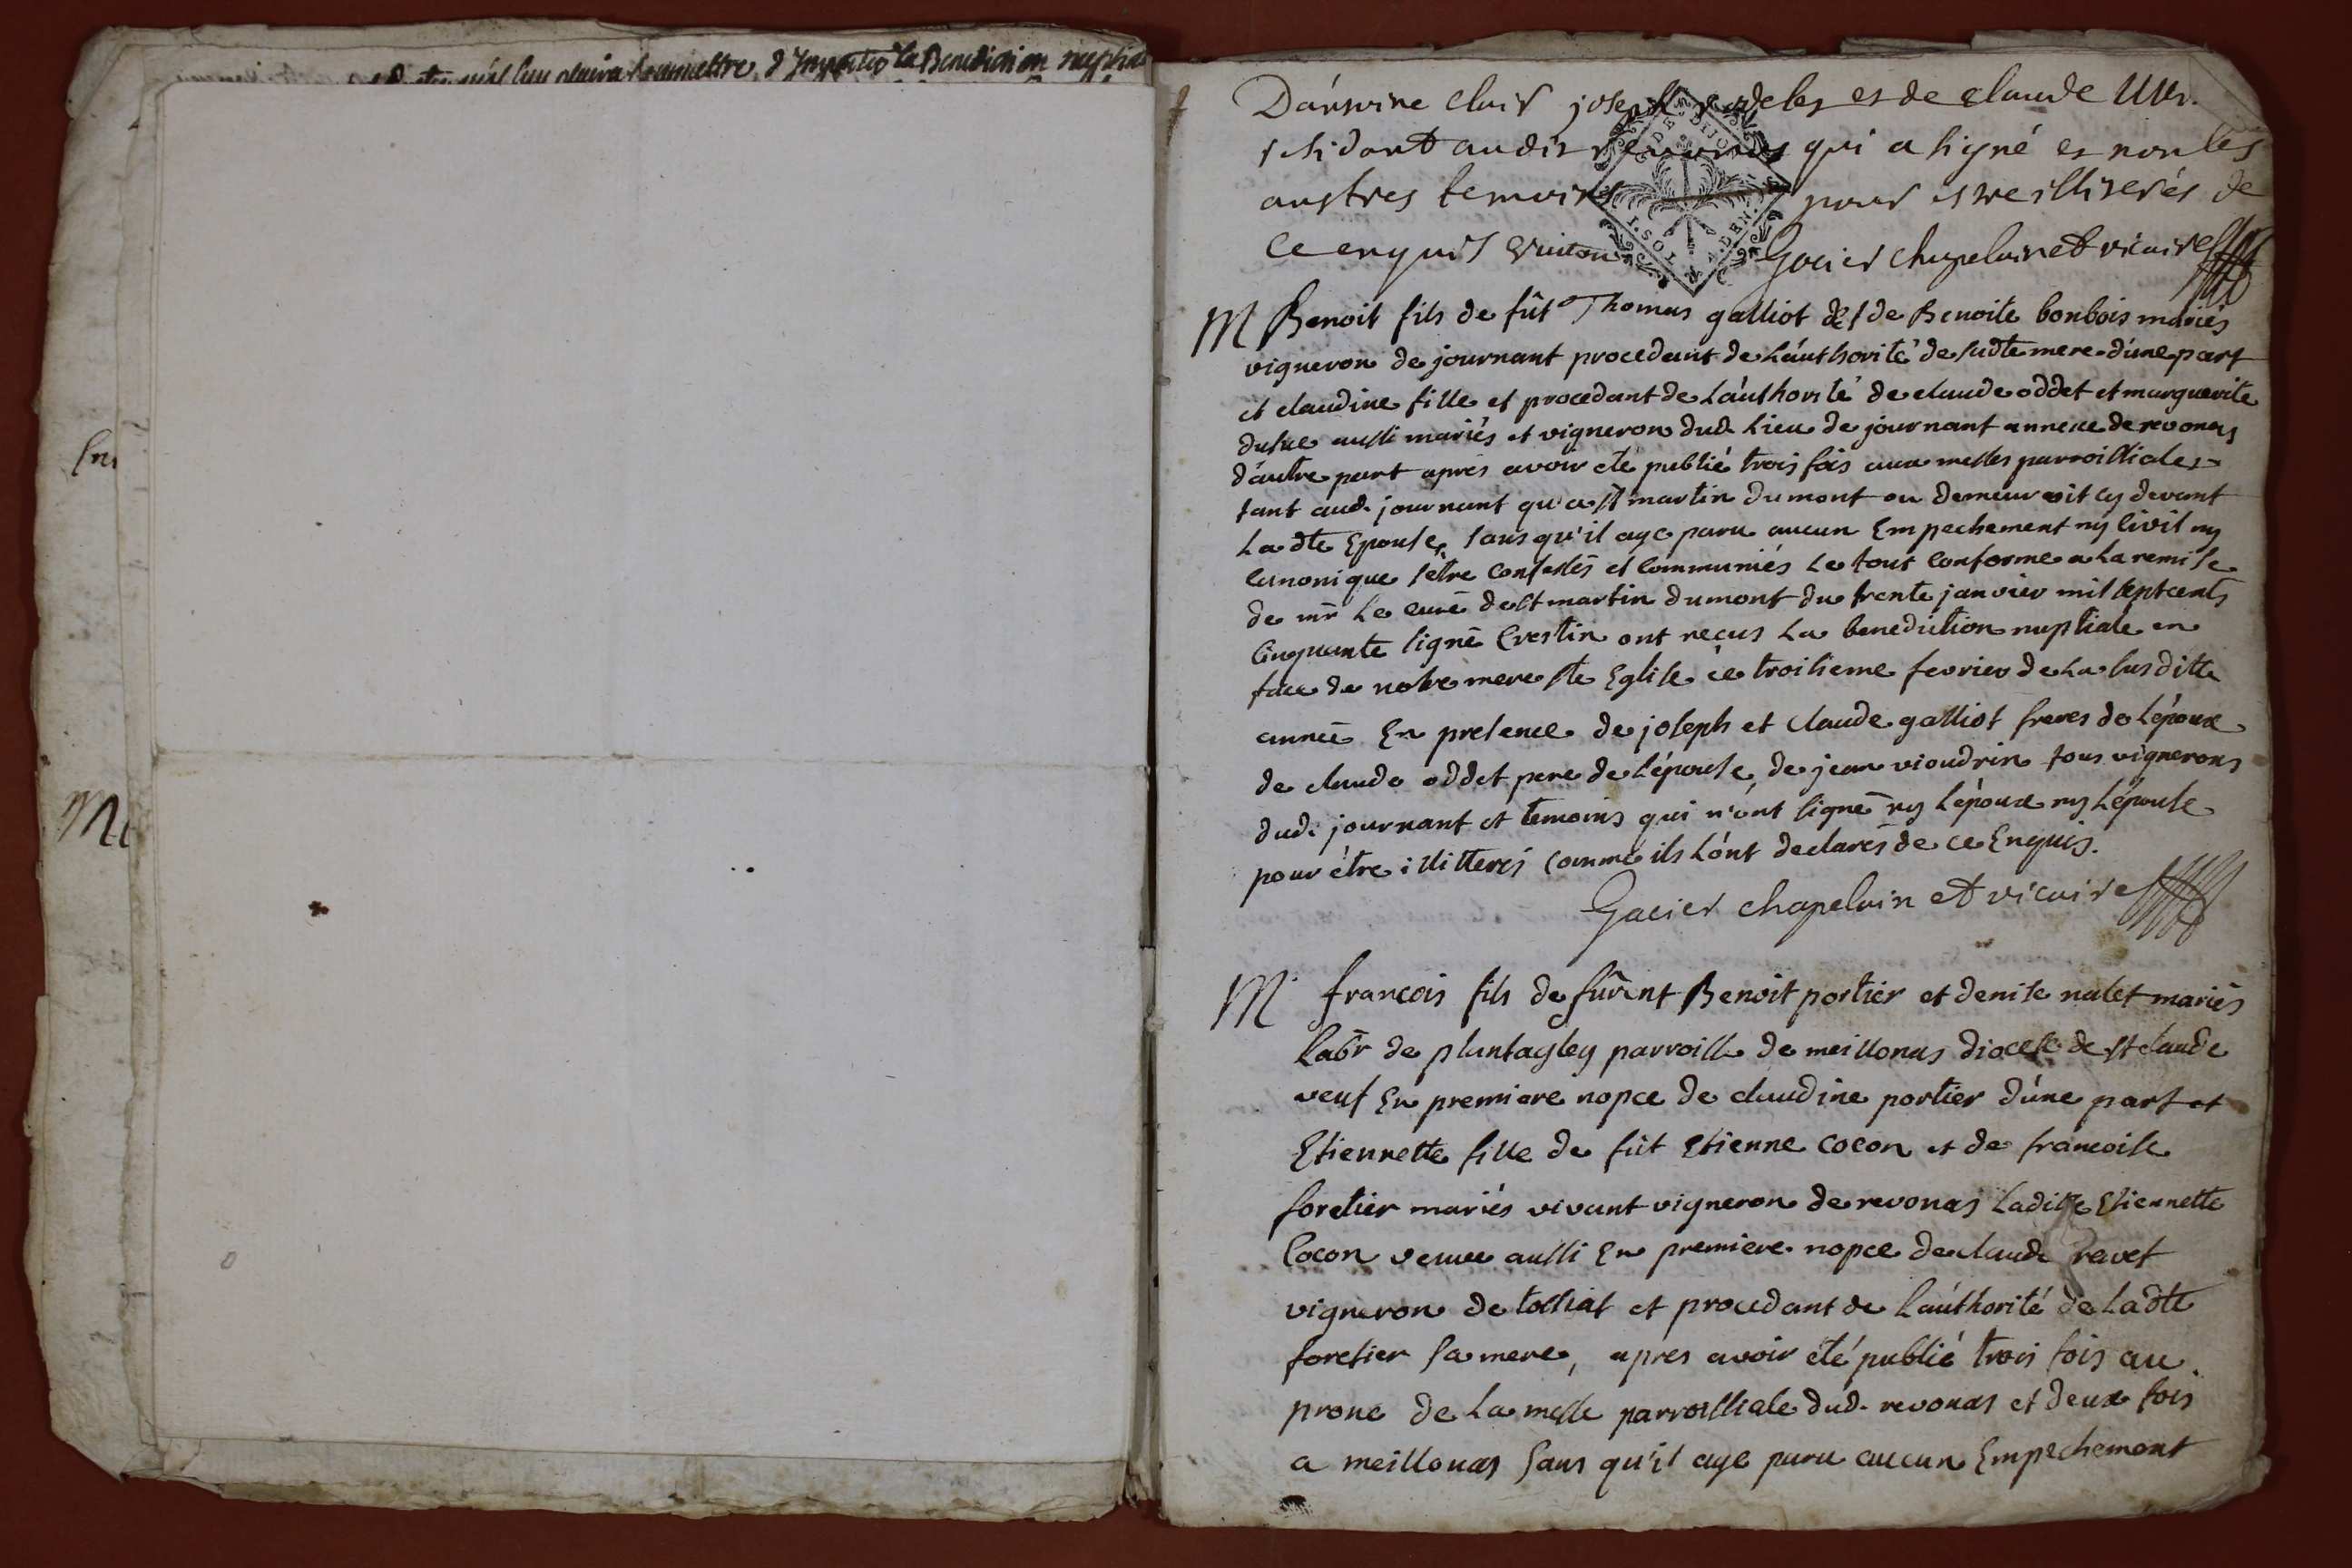 la Benediction nuptiale
M
D'antoine clair joseph et de claude
residant audit revonas qui a signé et non les
austres temoins pour estre illiterés de
ce enquis Guiton Gacier chapelain et vicaire
M Benoit fils de fût Thomas galliot & de Benoite bonbois mariés
vigneron de journant procedant de L'authorité de sadte mere d'une part
et claudine fille et procedant de L'authorité de claude oddet et marguerite
aussi mariés et vigneron dud. Lieu de journant annexe de revonas
d'autre part apres avoir eté publié trois fois aux messes parroissiales
tant aud. journant qu'a st martin dumont ou demeuroit cy devant
La dte Epouse, sans qu'il aye paru aucun Empechement ny civil ny
canonique s'etre confessés et communiés Le tout conforme a La remise
de mr Le curé de st martin dumont du trente janvier mil septcents
cinquante signé Crestin ont reçus La benediction nuptiale en
face de notre mere ste Eglise ce troisieme fevrier de La susditte
année En presence de joseph et Claude galliot freres de L'époux
de claude oddet pere de L'épouse, de jean vioudrin tous vignerons
dud. journant et temoins qui n'ont signé ny L'époux ny L'épouse
pour être illitterés comme ils L'ont declarés de ce Enquis.
Gacier chapelain et vicaire
M francois fils de furent Benoit portier et denise nalet mariés
Labr de plantagley parroisse de meillonas diocese de st claude
veuf En premiere nopce de claudine portier d'une part et
Etiennette fille de fût Etienne cocon et de francoise
foretier mariés vivant vigneron de revonas Laditte Etiennette
Cocon veuve aussi En premiere nopce de claude revet
vigneron de tossiat et procedant de L'authorité de Ladte
foretier sa mere, apres avoir été publié trois fois au
prone de La messe parroissiale dud. revonas et deux fois
a meillonas sans qu'il aye paru aucun Empechement